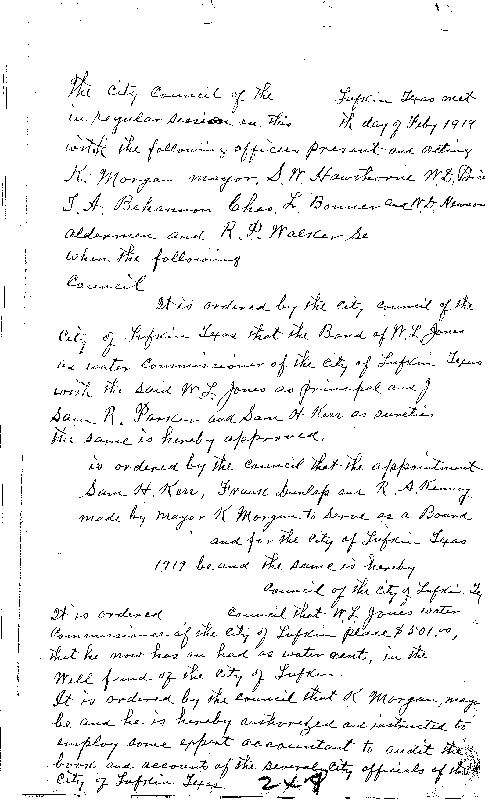 The City Council of the Lufkin Texas met
in regular session on this th day of Feby 1919
with the following officers present and acting
K. Morgan mayor, S. W. Hawthorne W. L.
J. A. Bohannon Chas. L. Bonner and W. D.
aldermen and R. P. Walker Se
when the following
Council
It is ordered by the city council of the
City of Lufkin Texas that the Bond of W. L. Jones
as water Commissioner of the City of Lufkin Texas
with the said W. L. Jones as principal and J
Sam R. Parker and Sam H. Kerr as sureties
the same is hereby approved.
is ordered by the council that the appointment
Sam H. Kerr, Frank Dunlap and R. A. Kenny
made by mayor K Morgan to serve as a Board
and for the City of Lufkin Texas
1919 be and the same is hereby
Council of the City of Lufkin Tex
It is ordered Council that W. L. Jones water
Commissioner of the City of Lufkin place $501.00,
that he now has on hand as water rent, in the
Well fund of the City of Lufkin.
It is ordered by the council that K Morgan, mayor
be and he is hereby authorized and instructed to
employ some expert accountant to audit the
books and account of the several city officials of the
City of Lufkin Texas